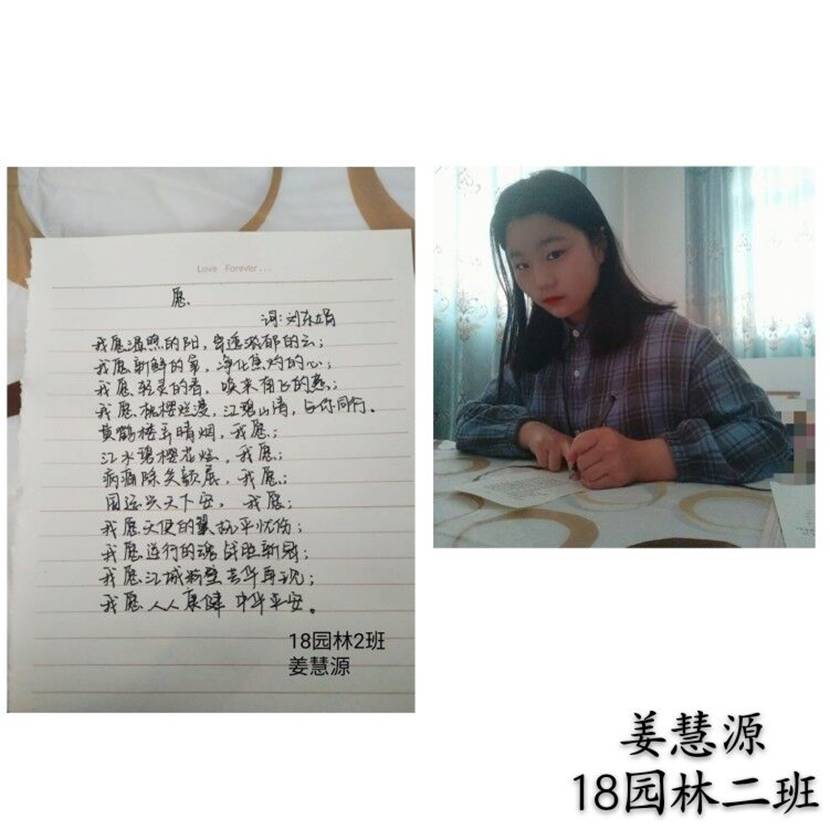 Love Forever...
愿
词:刘东娟
我愿温煦的阳,穿透浓郁的云;
我愿新鲜的氧,净化焦灼的心;
我愿轻灵的春,唤来南飞的燕;
我愿桃樱烂漫,江碧山清,与你同行。
黄鹤楼 晴烟,我愿;
江水碧樱花炫,我愿;
病痛除笑颜展,我愿;
国运兴天下安,我愿;
我愿天使的翼抚平忧伤;
我愿逆行的魂战胜新冠;
我愿江城 芳华再现;
我愿人人康健 中华平安。
18园林2班
姜慧源
姜慧源
18园林二班